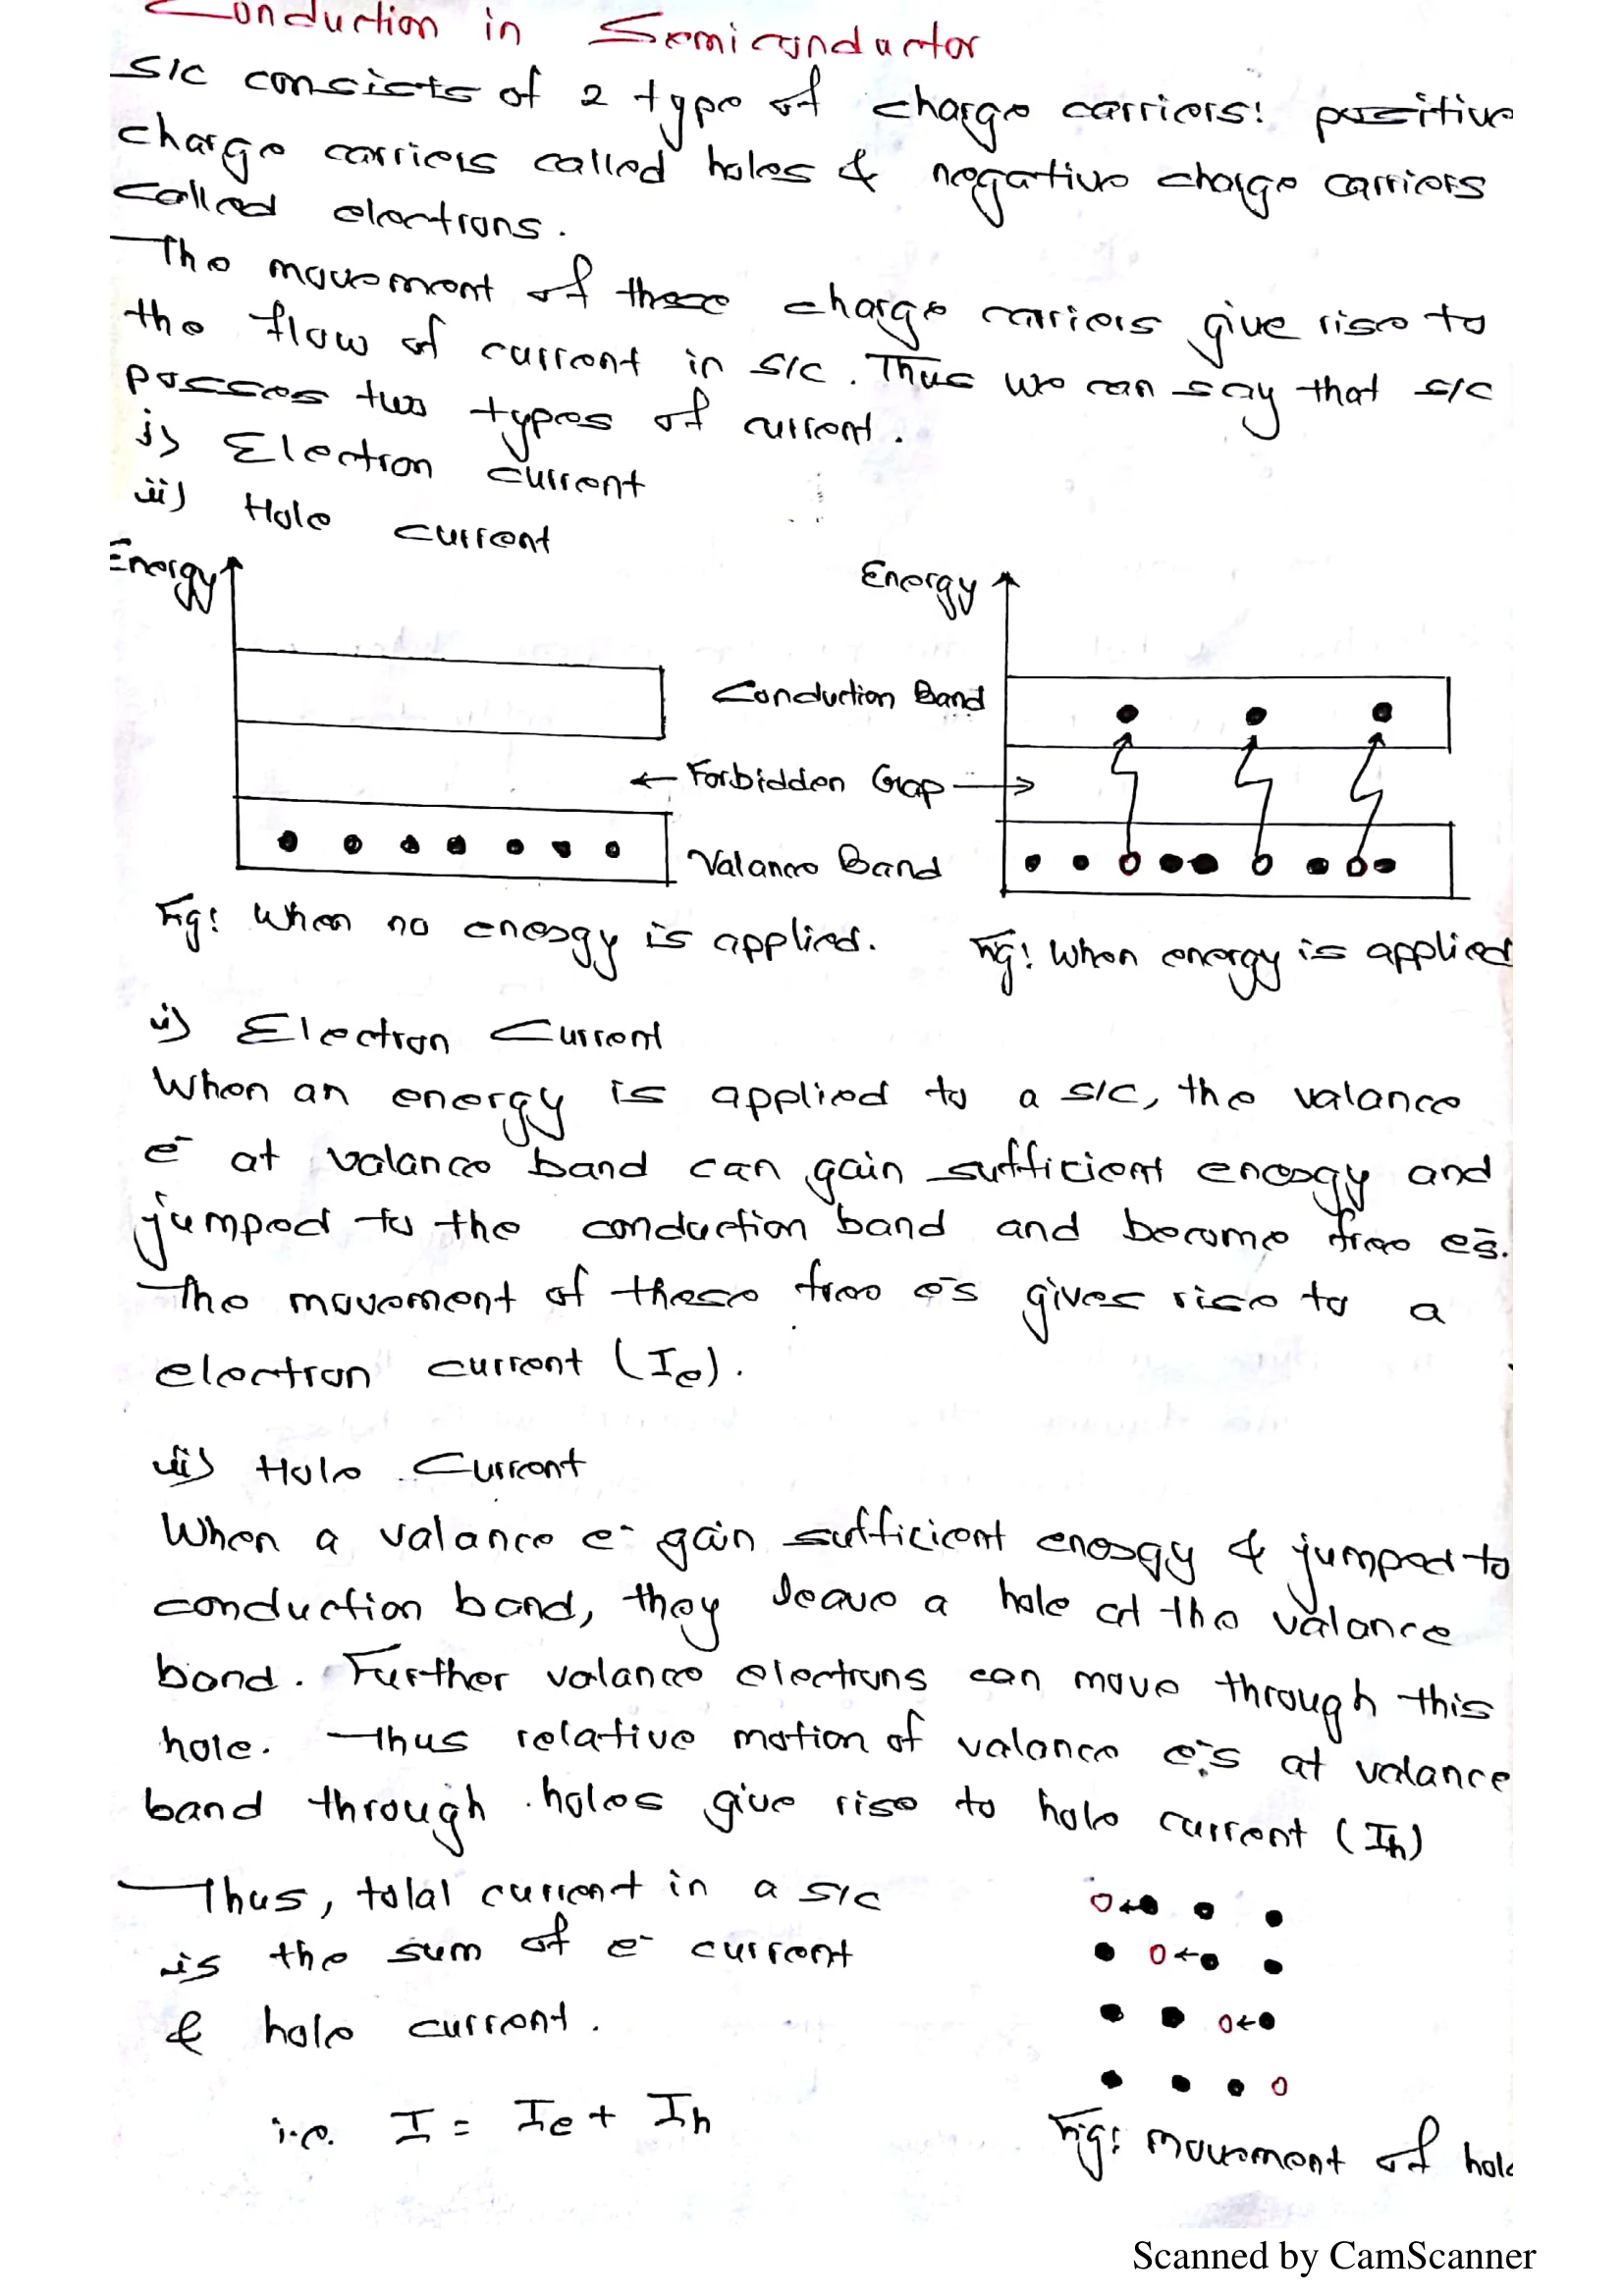 Conduction in Semiconductor
S/C consists of 2 type of charge carriers: positive
charge carriers called holes & negative charge carriers
called electrons.
The movement of these charge carriers give rise to
the flow of current in S/C. Thus we can say that S/C
posses two types of current.
i) Electron current
ii) Hole current
Energy
Energy
Conduction Band
← Forbidden Gap →
Valance Band
Fig: When no energy is applied.
Fig: When energy is applied
i) Electron Current
When an energy is applied to a S/C, the valance
e⁻ at valance band can gain sufficient energy and
jumped to the conduction band and become free e⁻s.
The movement of these free e⁻s gives rise to a
electron current (Ie).
ii) Hole Current
When a valance e⁻ gain sufficient energy & jumped to
conduction band, they leave a hole at the valance
band. Further valance electrons can move through this
hole. Thus relative motion of valance e⁻s at valance
band through holes give rise to hole current (Ih)
Thus, total current in a S/C
is the sum of e⁻ current
& hole current.
i.e. I = Ie + Ih
Fig: Movement of hole
Scanned by CamScanner